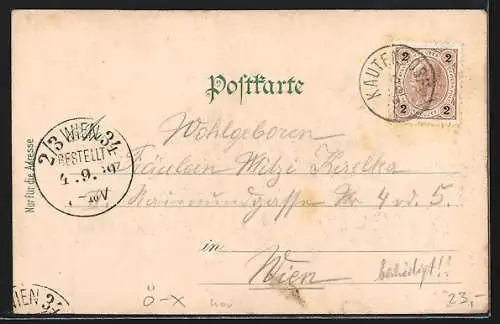 Postkarte
2 2
2 2
KAUTEN
2/3 WIEN 34
BESTELLT
4.9.97
Nur für die Adresse
Wohlgeboren
Fräulein Mitzi
Raimundgasse Nr 4 od. 5.
in
Wien
beschädigt!!
WIEN 34
Ö-X
23,-